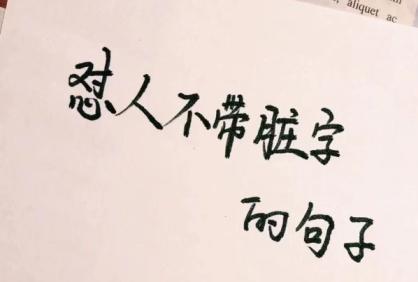 aliquet ac
怼人不带脏字
的句子